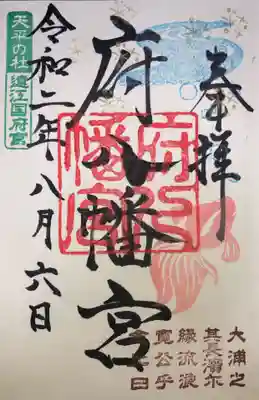 奉拝
府八幡宮
府八
幡宮
令和二年八月六日
天平の杜
遠江国府宮
大浦之
其長濱尓
縁流浪
寛公乎
念比日